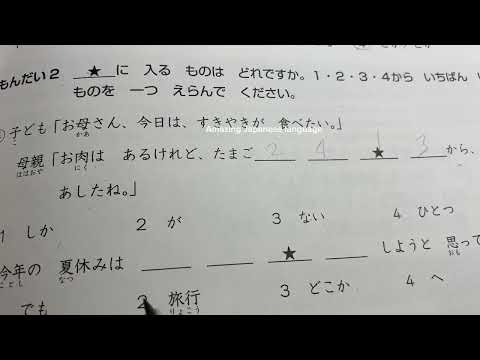 もんだい2 ★に 入る ものは どれですか。1・2・3・4から いちばん い
ものを 一つ えらんで ください。
子ども「お母さん、今日は、すきやきが 食べたい。」
かあ
Amazing Japanese language
母親「お肉は あるけれど、たまご 2 4 1★ 3 から、
ははおや にく
あしたね。」
1 しか 2 が 3 ない 4 ひとつ
今年の 夏休みは ★ しようと 思って
ことし なつ おも
でも 2 旅行 3 どこか 4 へ
りょこう